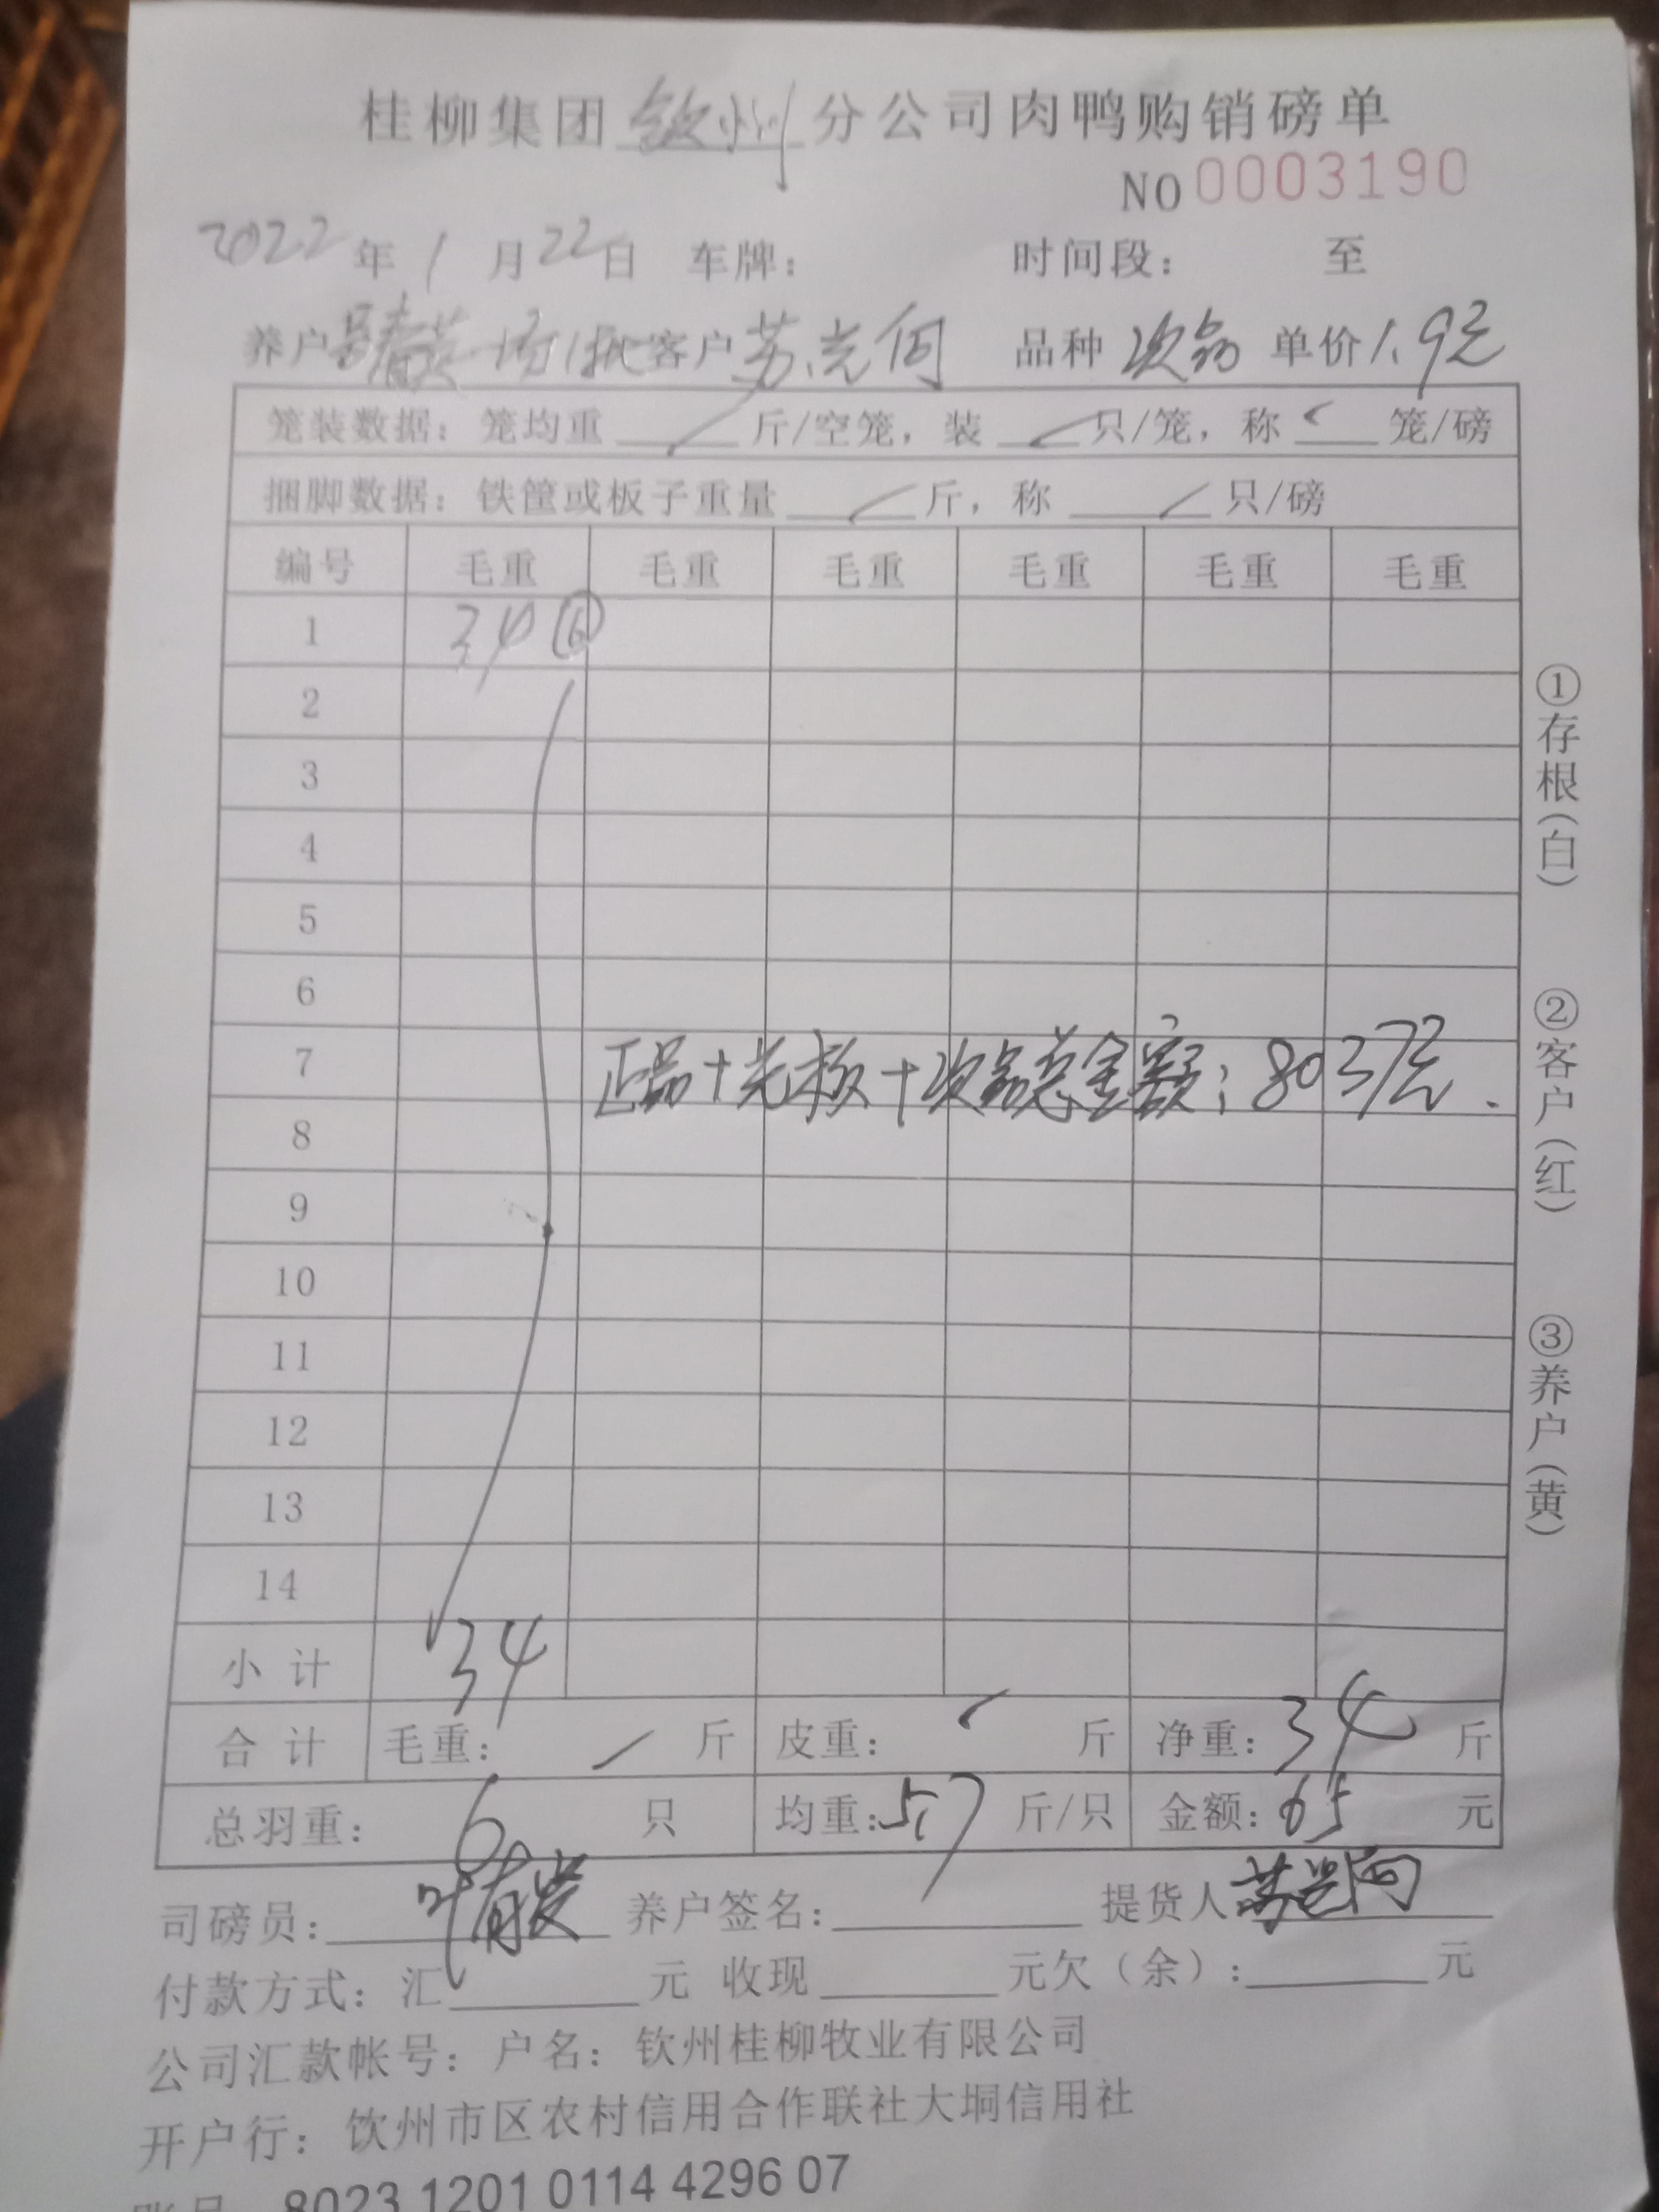 桂柳集团 钦州 分公司肉鸭购销磅单
NO 0003190
2022 年 1 月 22 日 车牌： 时间段： 至
养户 场1批 客户 苏 品种 次品 单价 1.9元
笼装数据：笼均重 斤/空笼，装 只/笼，称 笼/磅
捆脚数据：铁筐或板子重量 斤，称 只/磅
编号 毛重 毛重 毛重 毛重 毛重 毛重
1 34 ⑥
2
3
4
5
6
7 正品+光板+次品总金额：8037元.
8
9
10
11
12
13
14
小计 34
合计 毛重： 斤 皮重： 斤 净重：34 斤
总羽重：6 只 均重：5.7 斤/只 金额：65 元
司磅员：叶有发 养户签名： 提货人 苏
付款方式：汇 元 收现 元欠（余）： 元
公司汇款帐号：户名：钦州桂柳牧业有限公司
开户行：钦州市区农村信用合作联社大垌信用社
账号 8023 1201 0114 4296 07
①存根（白）
②客户（红）
③养户（黄）